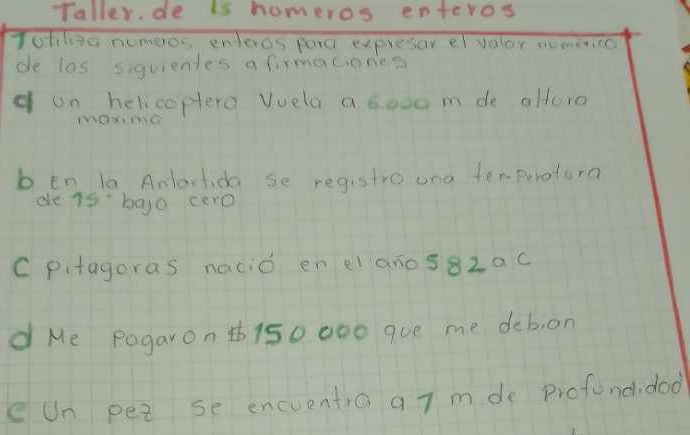 Taller. de ls nomeros enteros
1 utiliza numeros enteros para expresar el valor numerico
de las siguientes afirmaciones
a un helicoptero Vuela a 6.000 m de altura
maximo
b En la Antartida se registro una temperatura
de 75° bajo cero
C pitagoras nació en el año 582 a c
d Me pagaron $150.000 que me debian
e Un pez se encuentra a 7 m de profundidad